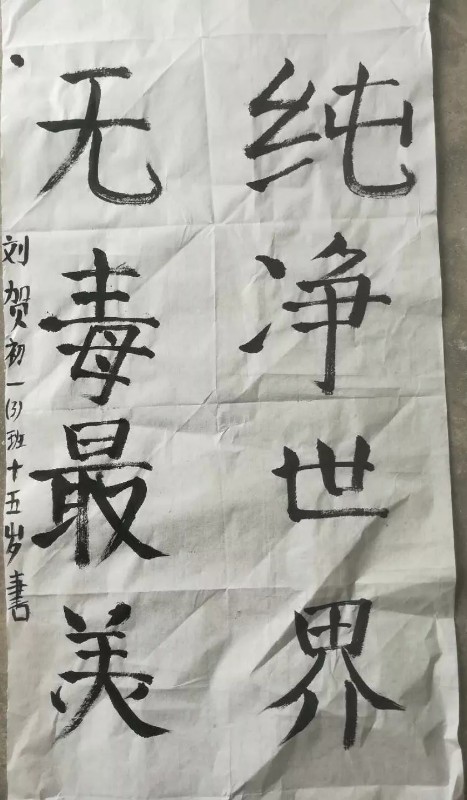 纯净世界
无毒最美
刘贺初一(3)班十五岁书